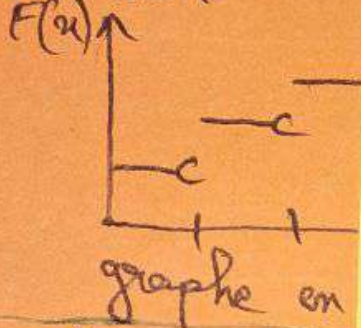 F(x)
graphe en